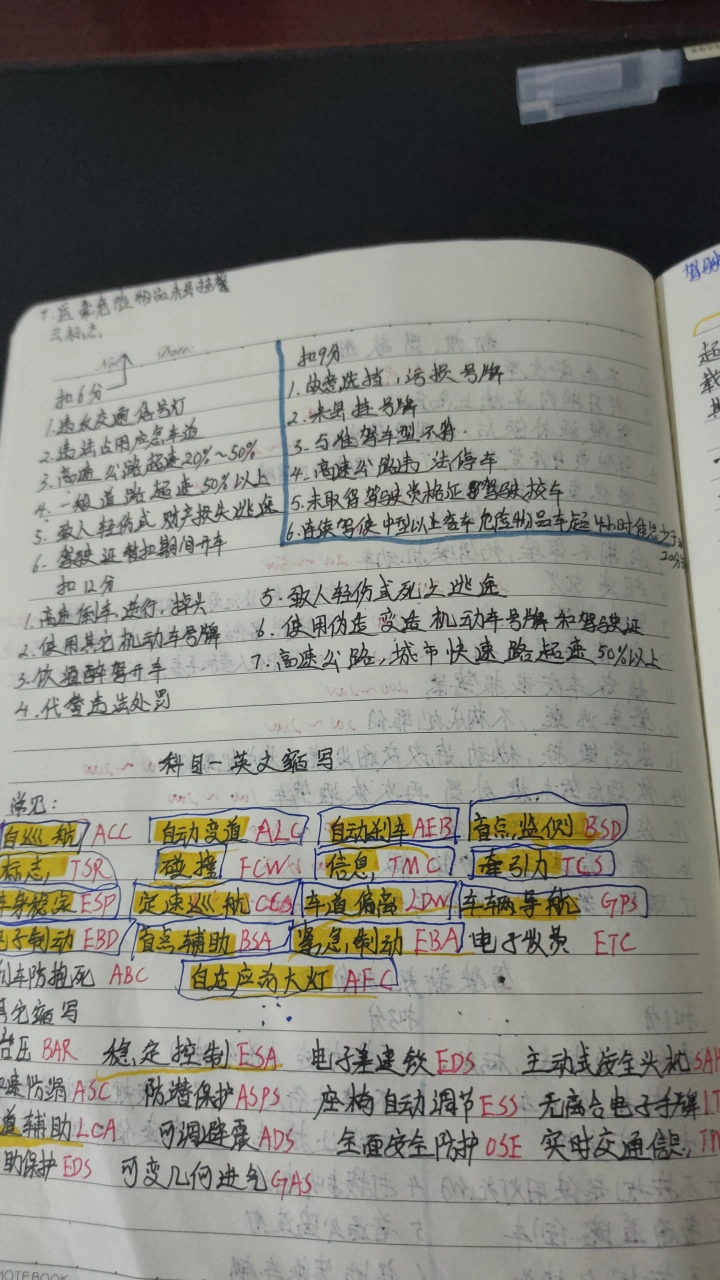 7.运载危险物品未悬挂警
示标志
No.
Date:
扣6分
1.违反交通信号灯
2.违法占用应急车道
3.高速公路超速20%~50%
4.一般道路超速50%以上
5.致人轻伤或财产损失逃逸
6.驾驶证暂扣期间开车
扣9分
1.故意遮挡,污损号牌
2.未悬挂号牌
3.与准驾车型不符.
4.高速公路违法停车
5.未取得驾驶资格证驾驶校车
6.连续驾使中型以上客车危险物品车超4小时休息少于
20分
扣12分
1.高速倒车、逆行,掉头
2.使用其它机动车号牌
3.饮酒醉驾开车
4.代替违法处罚
5.致人轻伤或死亡逃逸
6.使用伪造变造机动车号牌和驾驶证
7.高速公路,城市快速路超速50%以上
科目一英文缩写
常见:
自巡航 ACC 自动变道 ALC 自动刹车AEB 盲点监测 BSD
标志,TSR 碰撞 FCW 信息,TMC 牵引力TCS
车身稳定ESP 定速巡航CCS 车道偏离LDW 车辆导航 GPS
电子制动EBD 盲点辅助BSA 紧急制动EBA 电子收费 ETC
刹车防抱死 ABC 自适应前大灯 AFC
其它缩写
BAR 稳定控制ESA 电子差速锁EDS 主动式安全头枕SAH
防滑ASC 防潜保护ASPS 座椅自动调节ESS 无离合电子手排
道辅助LCA 可调避震ADS 全面安全防护OSE 实时交通信息,
助保护EDS 可变几何进气GAS
NOTEBOOK
驾驶
超
载